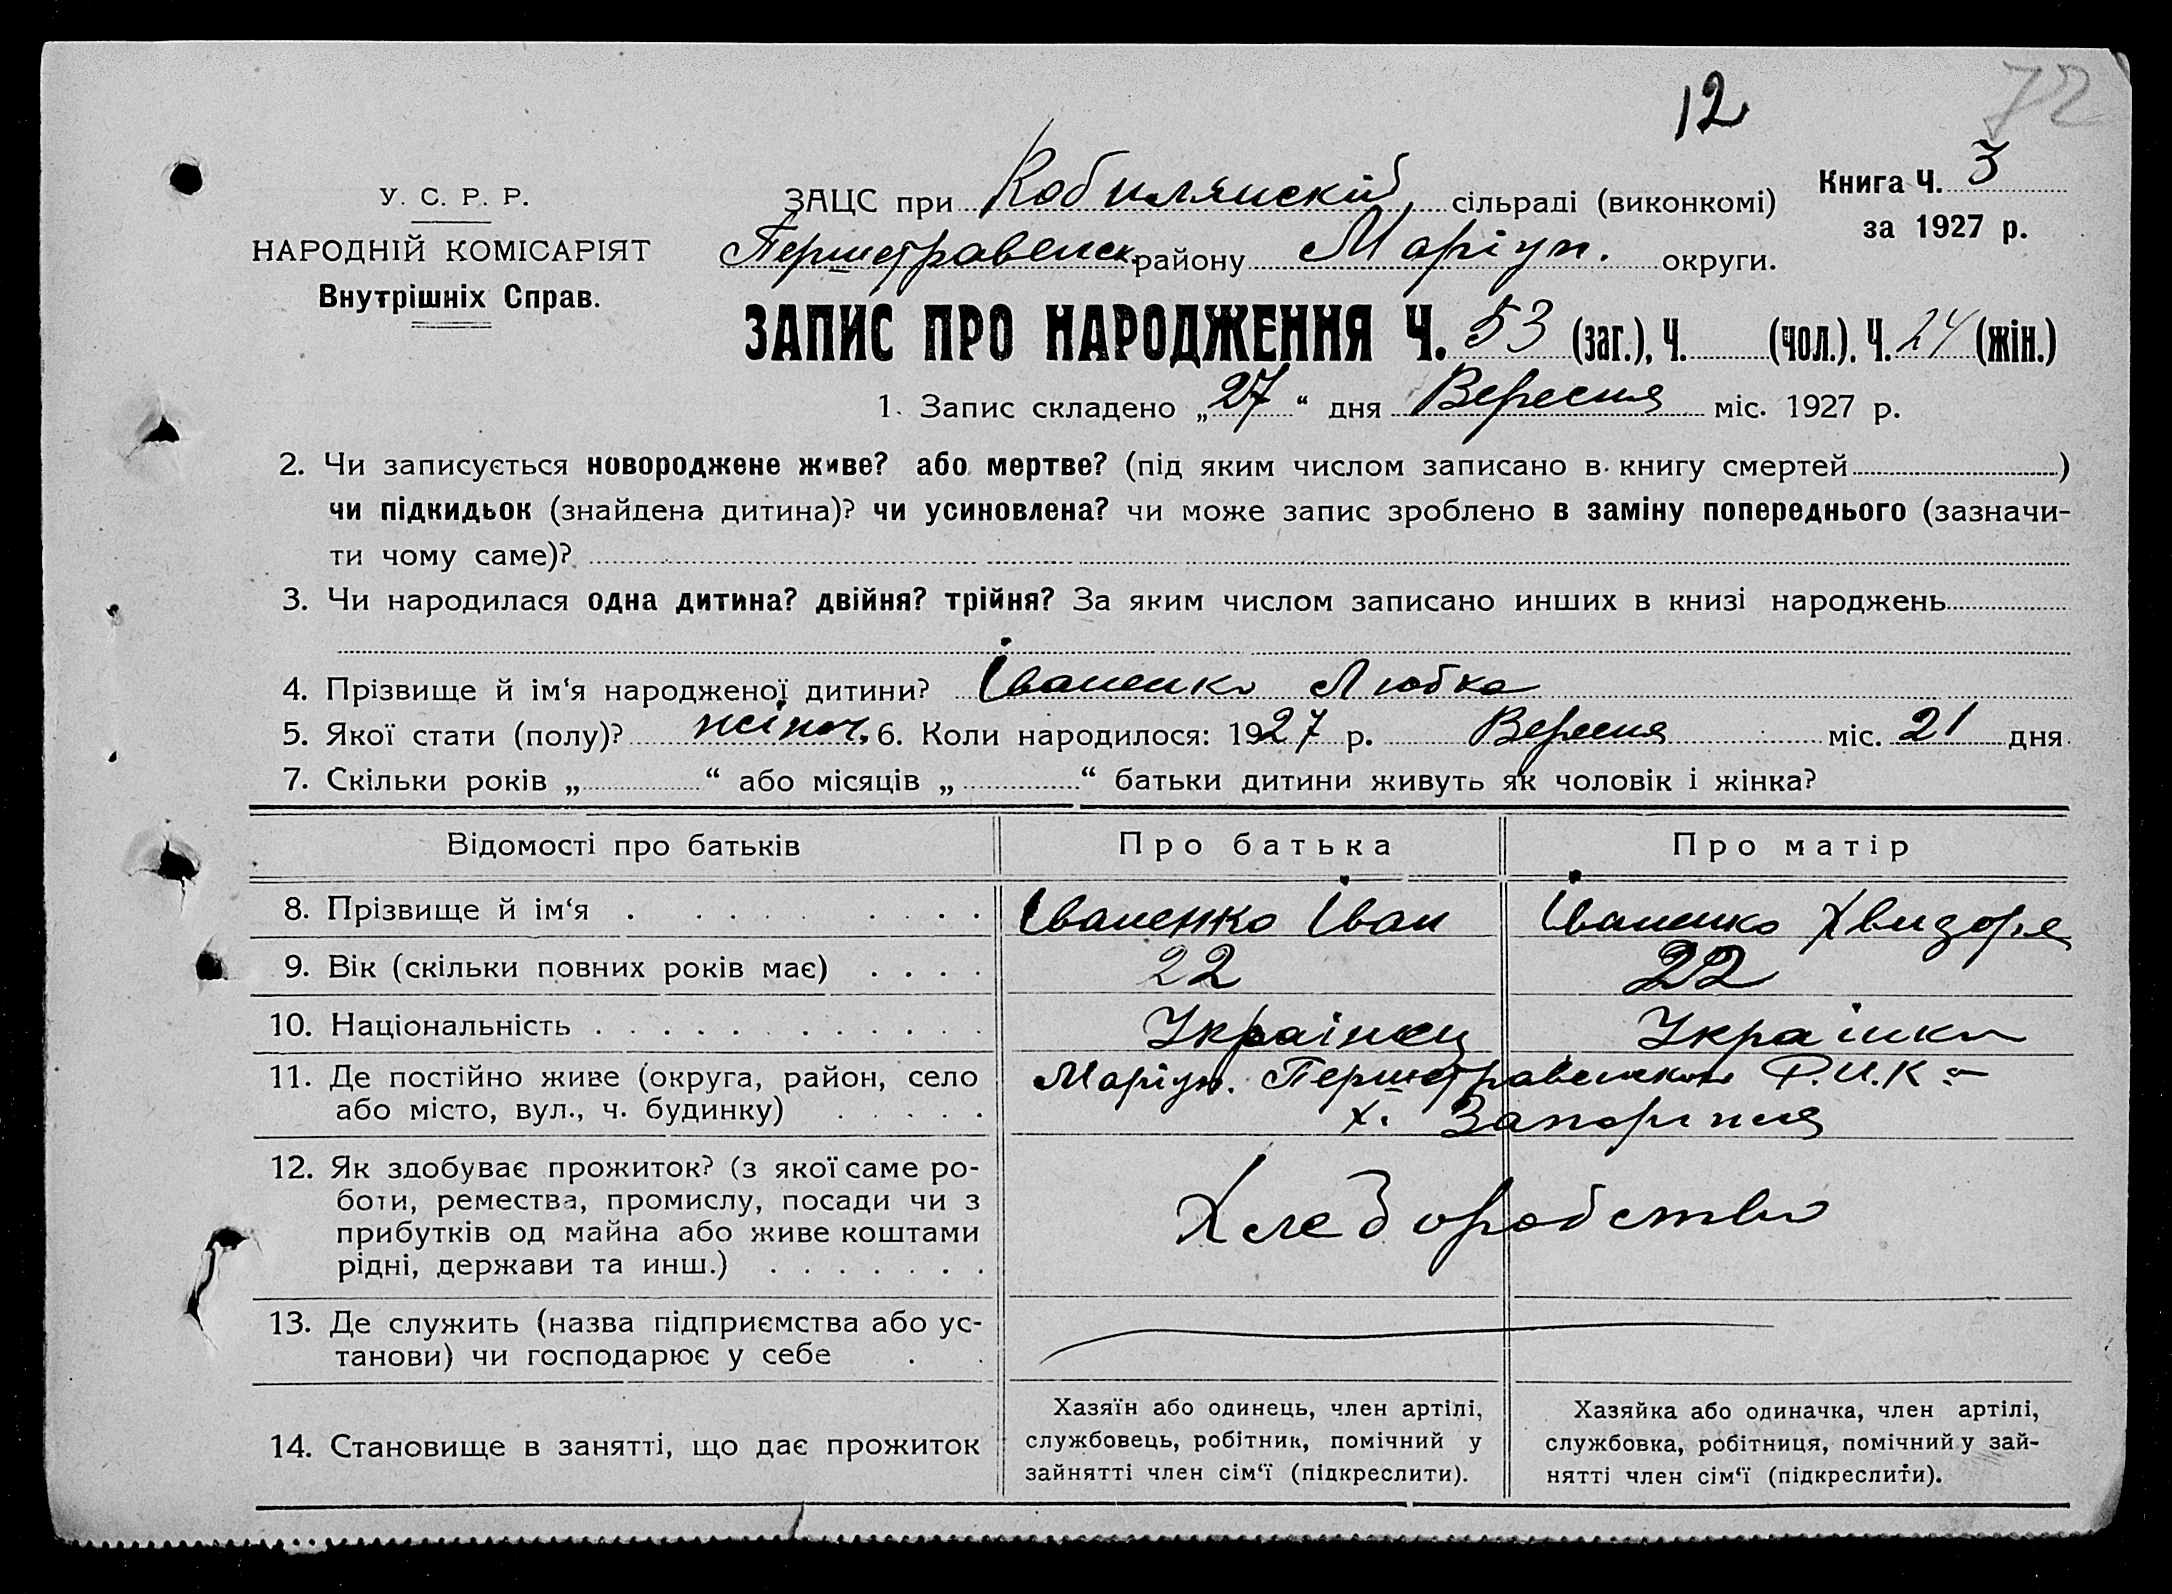 12
72
У. С. Р. Р.
НАРОДНІЙ КОМІСАРІЯТ
Внутрішніх Справ.
ЗАЦС при Кобилянскій сільраді (виконкомі)
Книга Ч. 3
за 1927 р.
Першотравенск. району Маріуп. округи.
ЗАПИС ПРО НАРОДЖЕННЯ Ч. 53 (заг.), Ч. (чол.). Ч. 24 (жін.)
1. Запис складено „27“ дня Вересня міс. 1927 р.
2. Чи записується новороджене живе? або мертве? (під яким числом записано в книгу смертей )
чи підкидьок (знайдена дитина)? чи усиновлена? чи може запис зроблено в заміну попереднього (зазначи-
ти чому саме)?
3. Чи народилася одна дитина? двійня? трійня? За яким числом записано инших в книзі народжень
4. Прізвище й ім‘я народженої дитини? Іваненко Любка
5. Якої стати (полу)? жіноч. 6. Коли народилося: 1927 р. Вересня міс. 21 дня
7. Скільки років „ “ або місяців „ “ батьки дитини живуть як чоловік і жінка?
Відомості про батьків Про батька Про матір
8. Прізвище й ім‘я Іваненко Іван Іваненко Хвидоря
9. Вік (скільки повних років має) 22 22
10. Національність Українец Украінка
11. Де постійно живе (округа, район, село Маріуп. Першотравенском Р.И.К-
або місто, вул., ч. будинку) х. Запоріжя
12. Як здобуває прожиток? (з якої саме ро-
боти, ремества, промислу, посади чи з
прибутків од майна або живе коштами
рідні, держави та инш.) Хлеборобство
13. Де служить (назва підприємства або ус-
танови) чи господарює у себе
14. Становище в занятті, що дає прожиток
Хазяїн або одинець, член артілі,
службовець, робітник, помічний у
зайнятті член сім‘ї (підкреслити).
Хазяйка або одиначка, член артілі,
службовка, робітниця, помічний у зай-
нятті член сім‘ї (підкреслити).